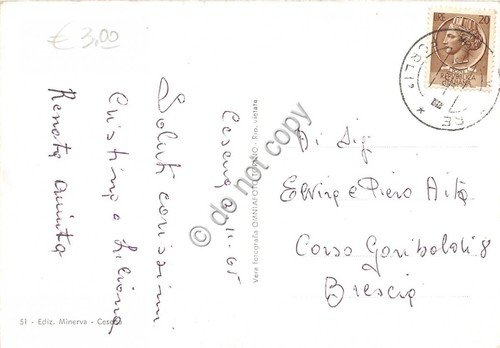 € 3,00
LIRE 20
FORLI'
Cesena 2-11-65
Saluti carissimi
Cristina e Liliana
Renata
51 - Ediz. Minerva - Cesena
Vera fotografia OMNIAFOTO TORINO - Rip. vietata
do not copy
Di Sig
Elvira e Piero Aita
Corso Garibaldi 8
Brescia